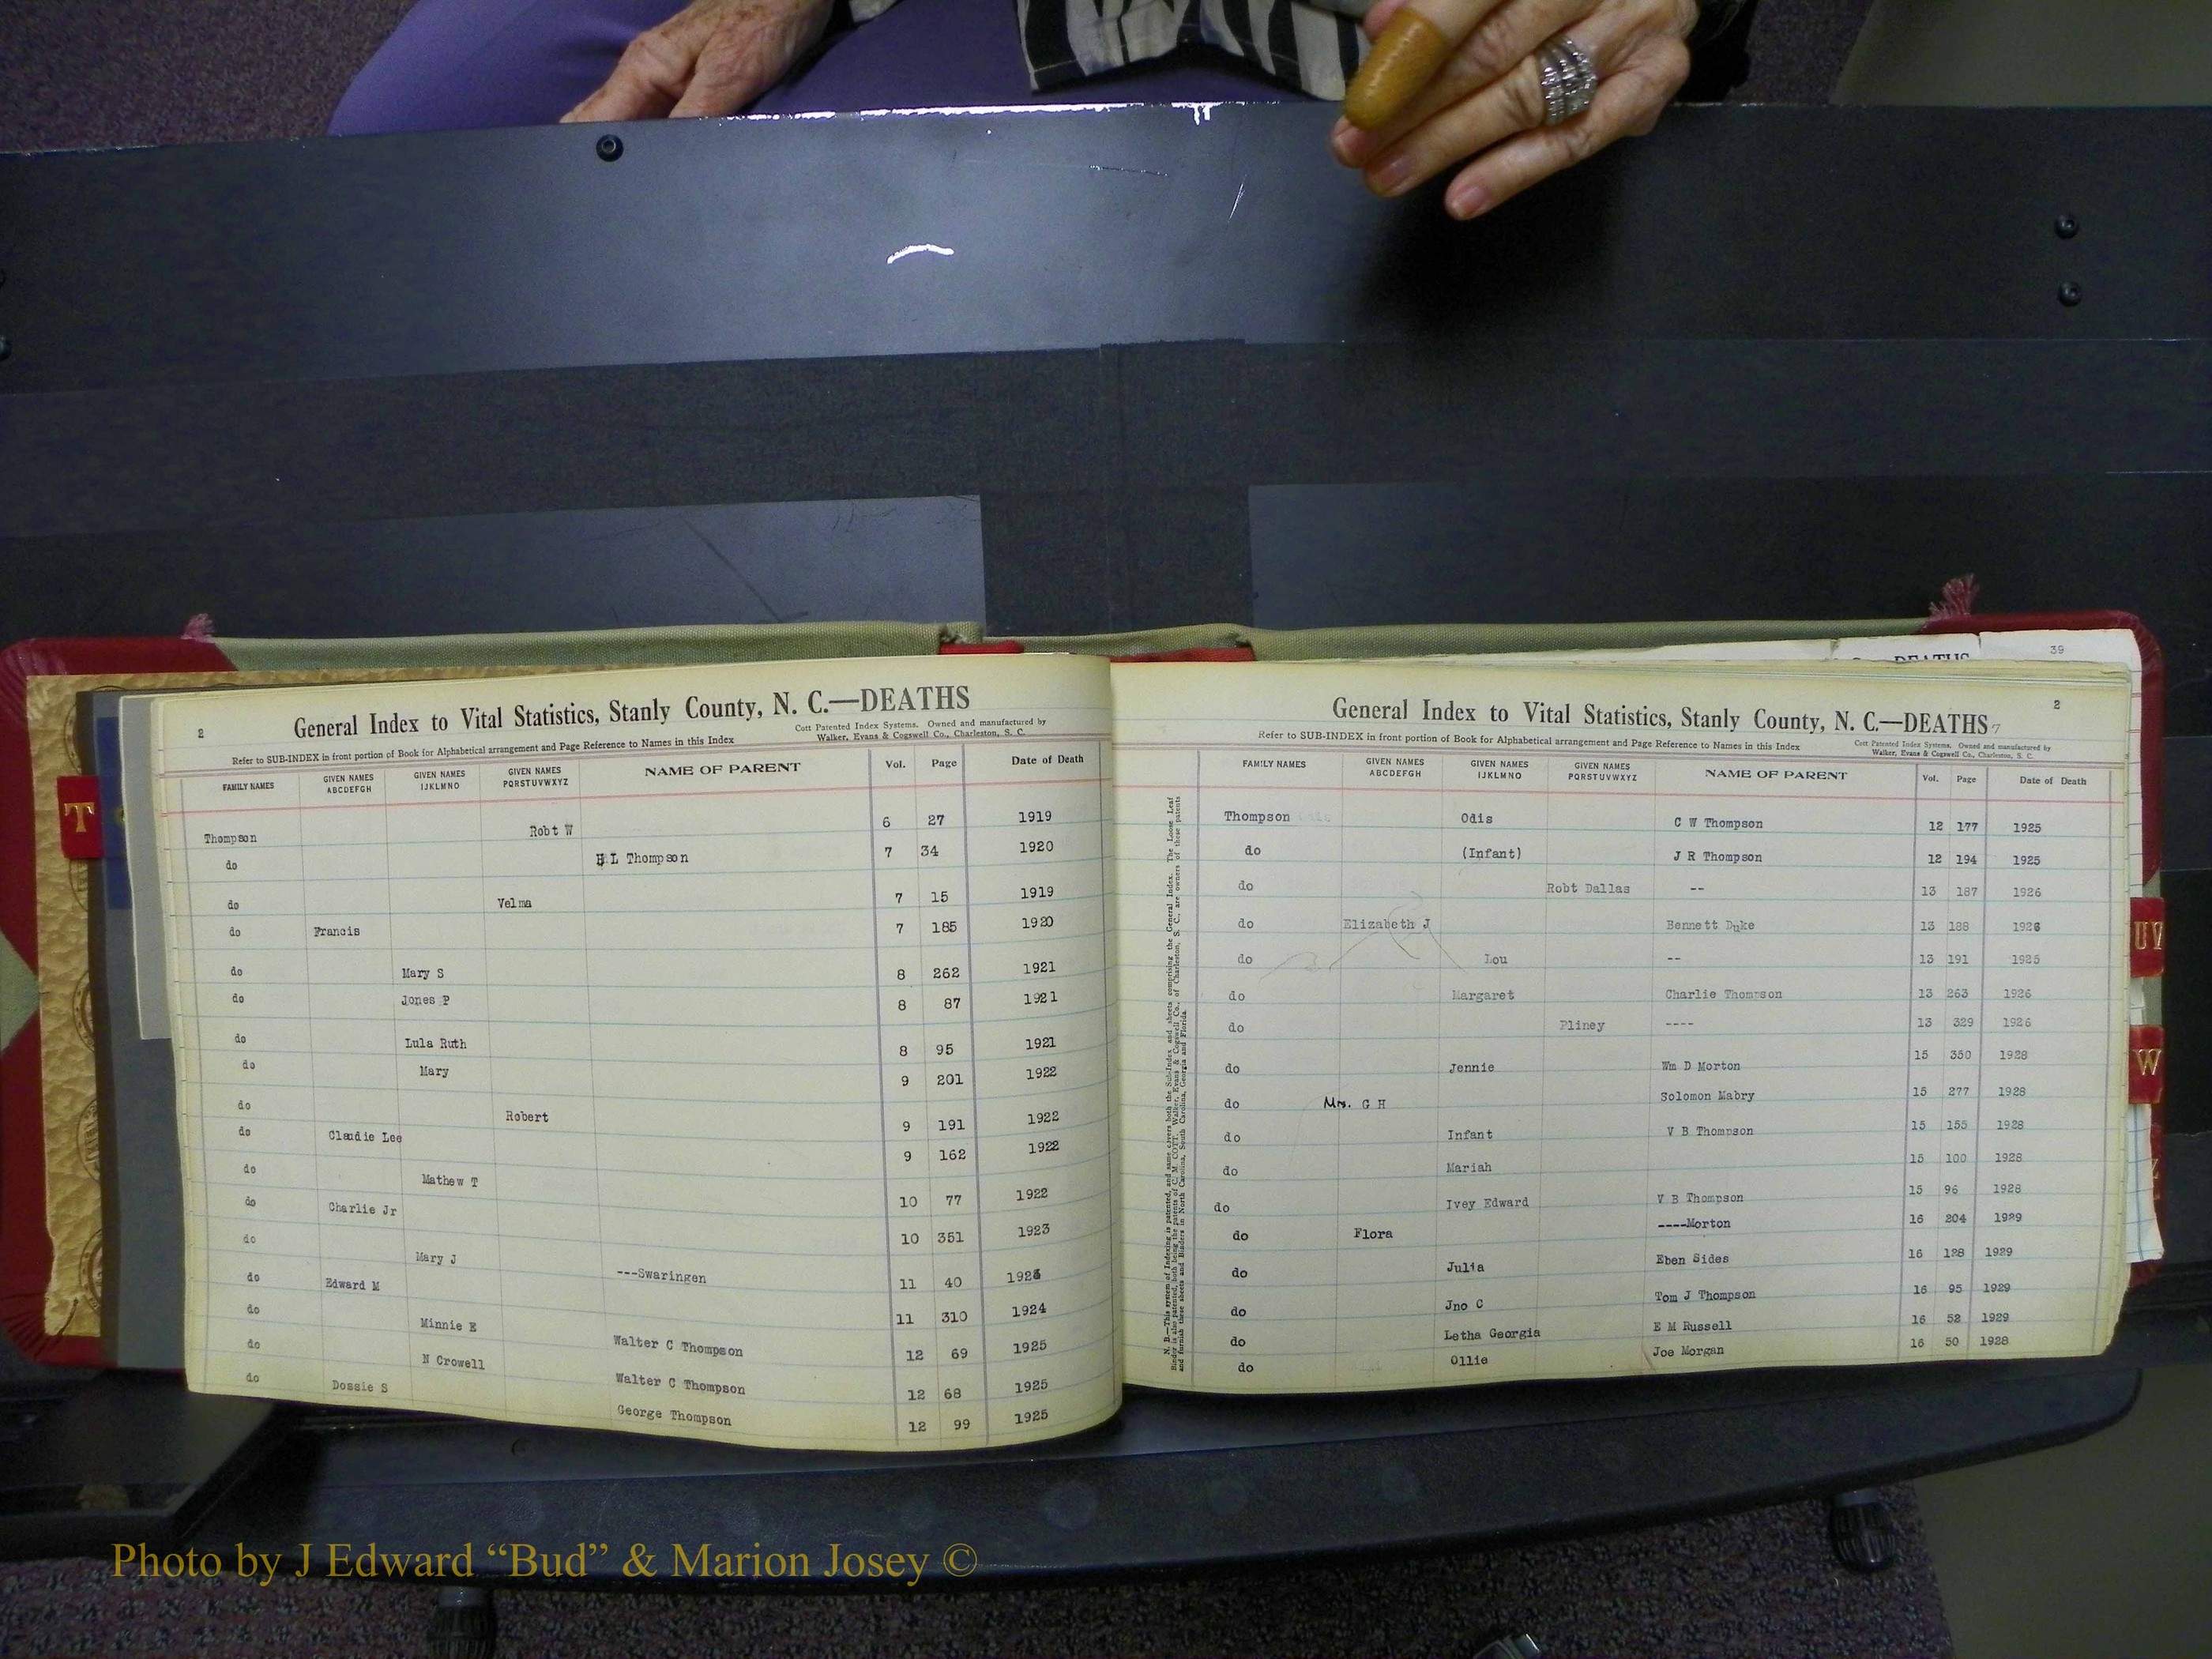 39
DEATHS
2
General Index to Vital Statistics, Stanly County, N. C.—DEATHS
Refer to SUB-INDEX in front portion of Book for Alphabetical arrangement and Page Reference to Names in this Index
Cott Patented Index Systems. Owned and manufactured by
Walker, Evans & Cogswell Co., Charleston, S. C.
FAMILY NAMES GIVEN NAMES ABCDEFGH GIVEN NAMES IJKLMNO GIVEN NAMES PQRSTUVWXYZ NAME OF PARENT Vol. Page Date of Death
Thompson Robt W 6 27 1919
do H L Thompson 7 34 1920
do Velma 7 15 1919
do Francis 7 185 1920
do Mary S 8 262 1921
do Jones P 8 87 1921
do Lula Ruth 8 95 1921
do Mary 9 201 1922
do Robert 9 191 1922
do Claudie Lee 9 162 1922
do Mathew T 10 77 1922
do Charlie Jr 10 351 1923
do Mary J ---Swaringen 11 40
do Edward M 11 310 1924
do Minnie E Walter C Thompson 12 69 1925
do N Crowell Walter C Thompson 12 68 1925
do Dossie S George Thompson 12 99 1925
T
2
General Index to Vital Statistics, Stanly County, N. C.—DEATHS
Refer to SUB-INDEX in front portion of Book for Alphabetical arrangement and Page Reference to Names in this Index
Cott Patented Index Systems. Owned and manufactured by
Walker, Evans & Cogswell Co., Charleston, S. C.
FAMILY NAMES GIVEN NAMES ABCDEFGH GIVEN NAMES IJKLMNO GIVEN NAMES PQRSTUVWXYZ NAME OF PARENT Vol. Page Date of Death
Thompson Odis C W Thompson 12 177 1925
do (Infant) J R Thompson 12 194 1925
do Robt Dallas -- 13 187 1926
do Elizabeth J Bennett Duke 13 188 1926
do Lou -- 13 191 1925
do Margaret Charlie Thompson 13 263 1926
do Pliney ---- 13 329 1926
do Jennie Wm D Morton 15 350 1928
do Mrs. G H Solomon Mabry 15 277 1928
do Infant V B Thompson 15 155 1928
do Mariah 15 100 1928
do Ivey Edward V B Thompson 15 96 1928
do Flora ----Morton 16 204 1929
do Julia Eben Sides 16 128 1929
do Jno C Tom J Thompson 16 95 1929
do Letha Georgia E M Russell 16 52 1929
do Ollie Joe Morgan 16 50 1928
N. B.—This system of Indexing is patented, and same covers both the Sub-Index and sheets comprising the General Index. The Loose Leaf
Binder is also patented, both being the patents of C. M. COTT. Walker, Evans & Cogswell Co., of Charleston, S. C., are owners of these patents
and furnish these sheets and Binders in North Carolina, South Carolina, Georgia and Florida.
UV
W
Photo by J Edward “Bud” & Marion Josey ©